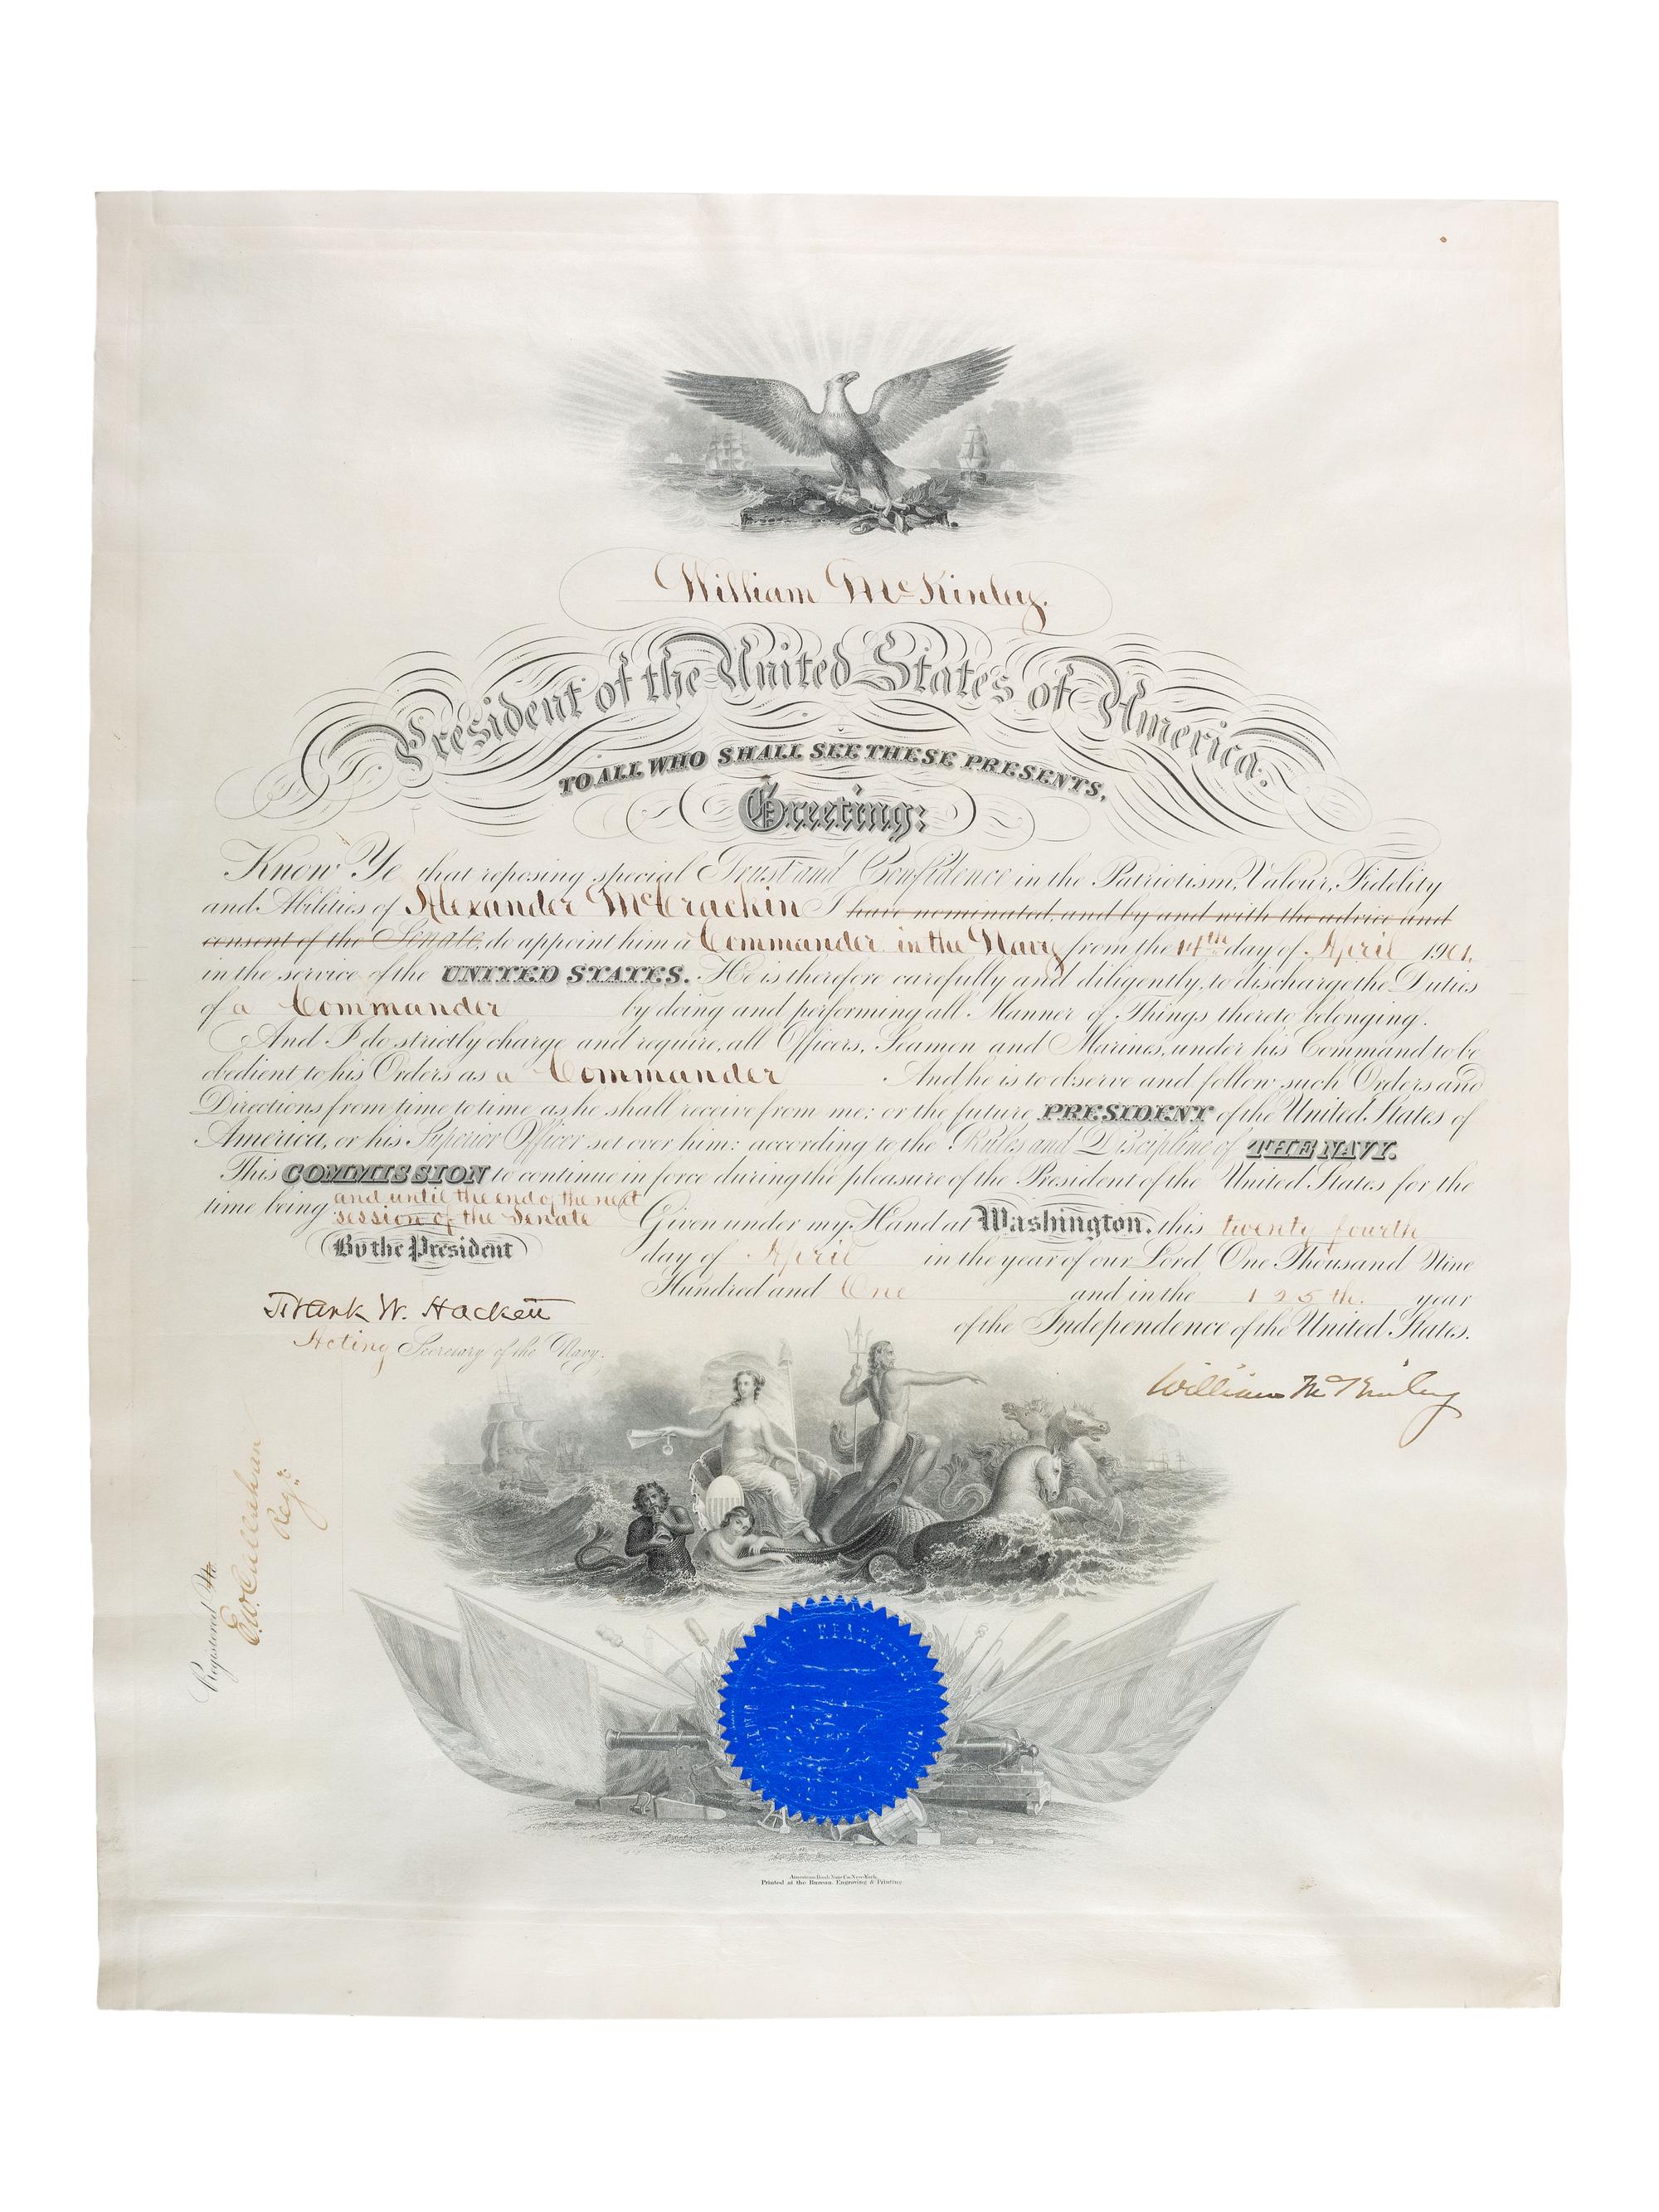 William McKinley.
President of the United States of America.
TO ALL WHO SHALL SEE THESE PRESENTS,
Greeting:
Know Ye that reposing special Trust and Confidence in the Patriotism, Valour, Fidelity
and Abilities of Alexander McCrackin I have nominated, and by and with the advice and
consent of the Senate, do appoint him a Commander in the Navy from the 14th day of April 1901,
in the service of the UNITED STATES. He is therefore carefully and diligently, to discharge the Duties
of a Commander by doing and performing all Manner of Things thereto belonging.
And I do strictly charge and require, all Officers, Seamen and Marines, under his Command to be
obedient to his Orders as a Commander And he is to observe and follow such Orders and
Directions from time to time as he shall receive from me: or the future PRESIDENT of the United States of
America, or his Superior Officer set over him: according to the Rules and Discipline of THE NAVY.
This COMMISSION to continue in force during the pleasure of the President of the United States for the
time being and until the end of the next
session of the Senate
Given under my Hand at Washington, this twenty fourth
day of April in the year of our Lord One Thousand Nine
Hundred and One and in the 125th. year
of the Independence of the United States.
By the President
Frank W. Hackett
Acting Secretary of the Navy.
William McKinley
Registered No.
E.W. Callahan
Regr.
American Bank Note Co. New York.
Printed at the Bureau, Engraving & Printing